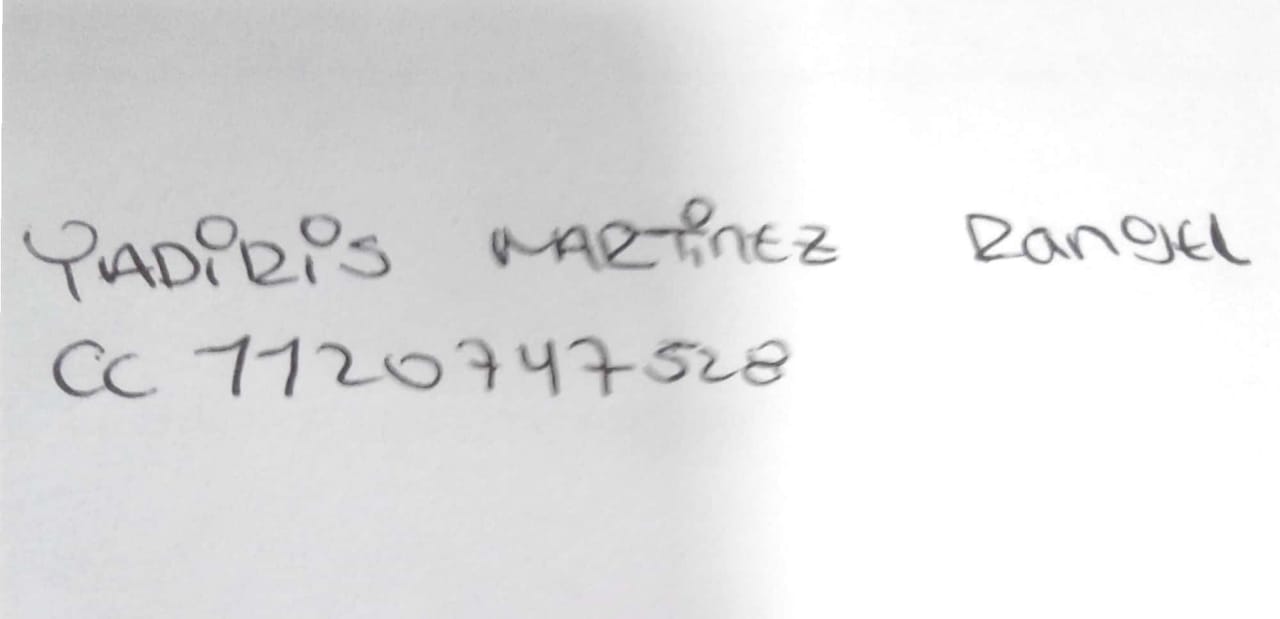 YADiRis MARTinEZ RangEl
CC 1120747528